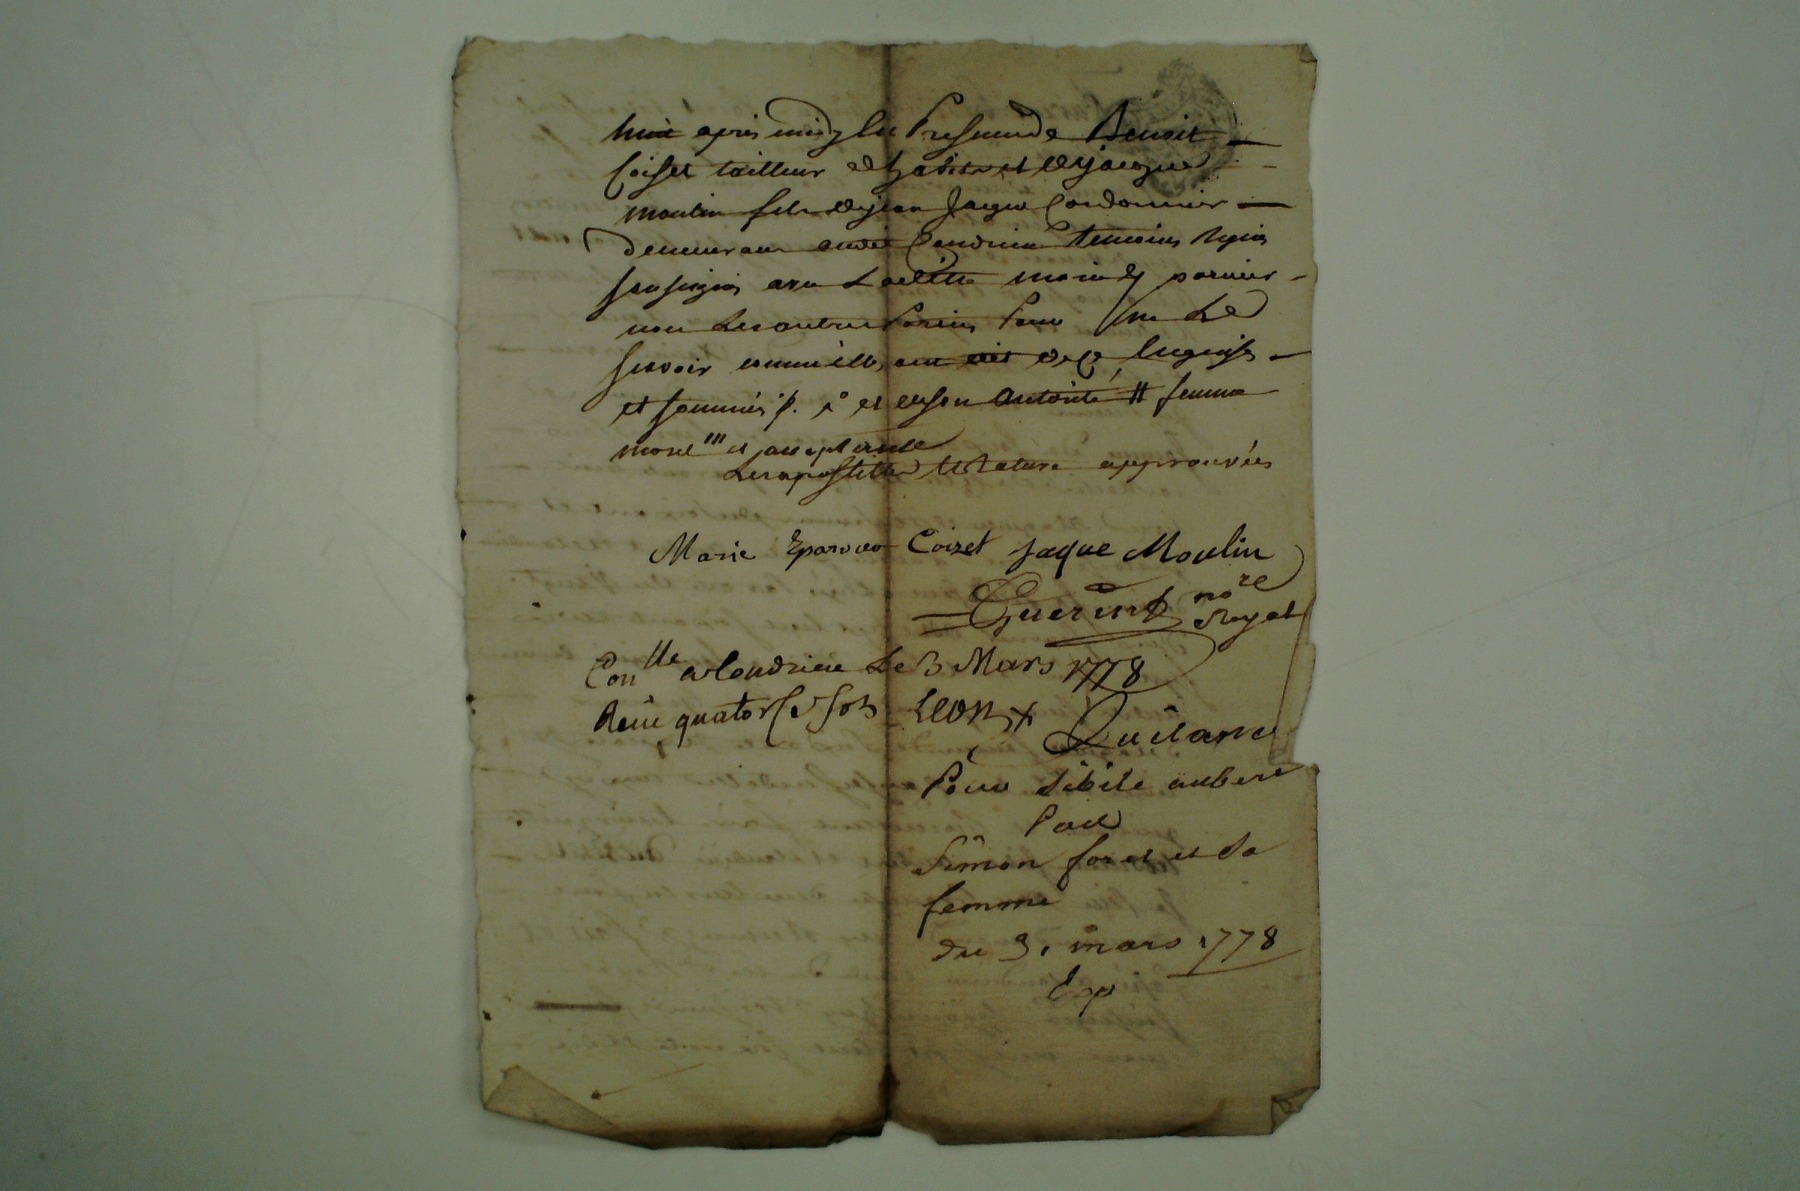 huit après midy En Presence de Benoit
Coiset tailleur et de jacque
moulin fils de jean Jacque Cordonnier
demeurans audit Condrieu temoins requis
soussignés avec Laditte marie
non Les autres Parties Pour ne Le
scavoir comme ils ont dit de ce Enquis
et sommés p. et de son autorité # femme
morel et acceptante
Les apostilles et rature approuvées
Marie Eparvier Coizet jaque Moulin
Guerin no^re Royal
Con^lle a Condrieu Le 3 Mars 1778
Reçu quatorse sols
Quitance
Pour Sibile aubert
Par
Simon foret et Sa
femme
du 3. mars 1778
Exp